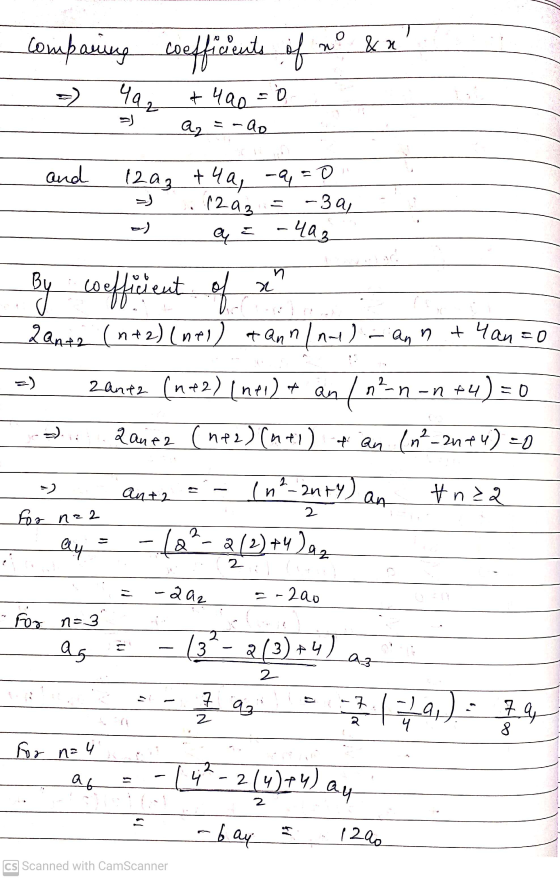 Comparing coefficients of x⁰ & x¹
=> 4a₂ + 4a₀ = 0
=> a₂ = -a₀
and 12a₃ + 4a₁ - a₁ = 0
=> 12a₃ = -3a₁
=> a₁ = -4a₃
By coefficient of xⁿ
2aₙ₊₂ (n+2)(n+1) + aₙ n(n-1) - aₙ n + 4aₙ = 0
=> 2aₙ₊₂ (n+2)(n+1) + aₙ (n²-n-n+4) = 0
=> 2aₙ₊₂ (n+2)(n+1) + aₙ (n²-2n+4) = 0
=> aₙ₊₂ = - (n²-2n+4)/2 aₙ ∀ n ≥ 2
For n=2
a₄ = - (2²-2(2)+4)/2 a₂
= -2a₂ = -2a₀
For n=3
a₅ = - (3²-2(3)+4)/2 a₃
= - 7/2 a₃ = -7/2 (-1/4 a₁) = 7a₁/8
For n=4
a₆ = - (4²-2(4)+4)/2 a₄
= -6a₄ = 12a₀
CS Scanned with CamScanner